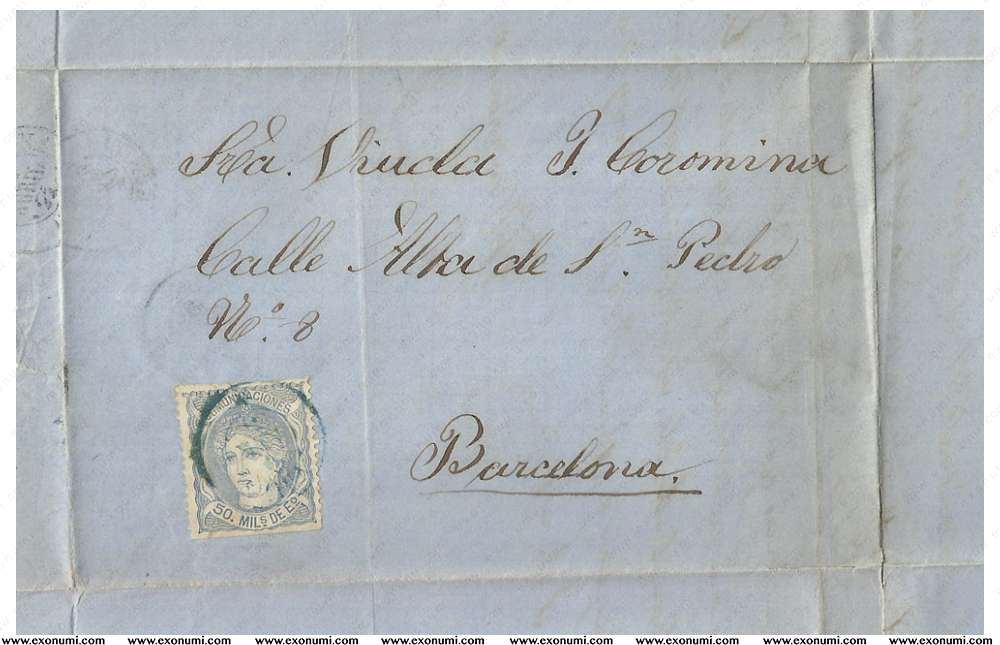 Sra. Viuda J. Coromina
Calle Alta de Sn. Pedro
No. 8
COMUNICACIONES
50. MILS DE Eo.
Barcelona.
www.exonumi.com www.exonumi.com www.exonumi.com www.exonumi.com www.exonumi.com www.exonumi.com www.exonumi.com www.exonumi.com